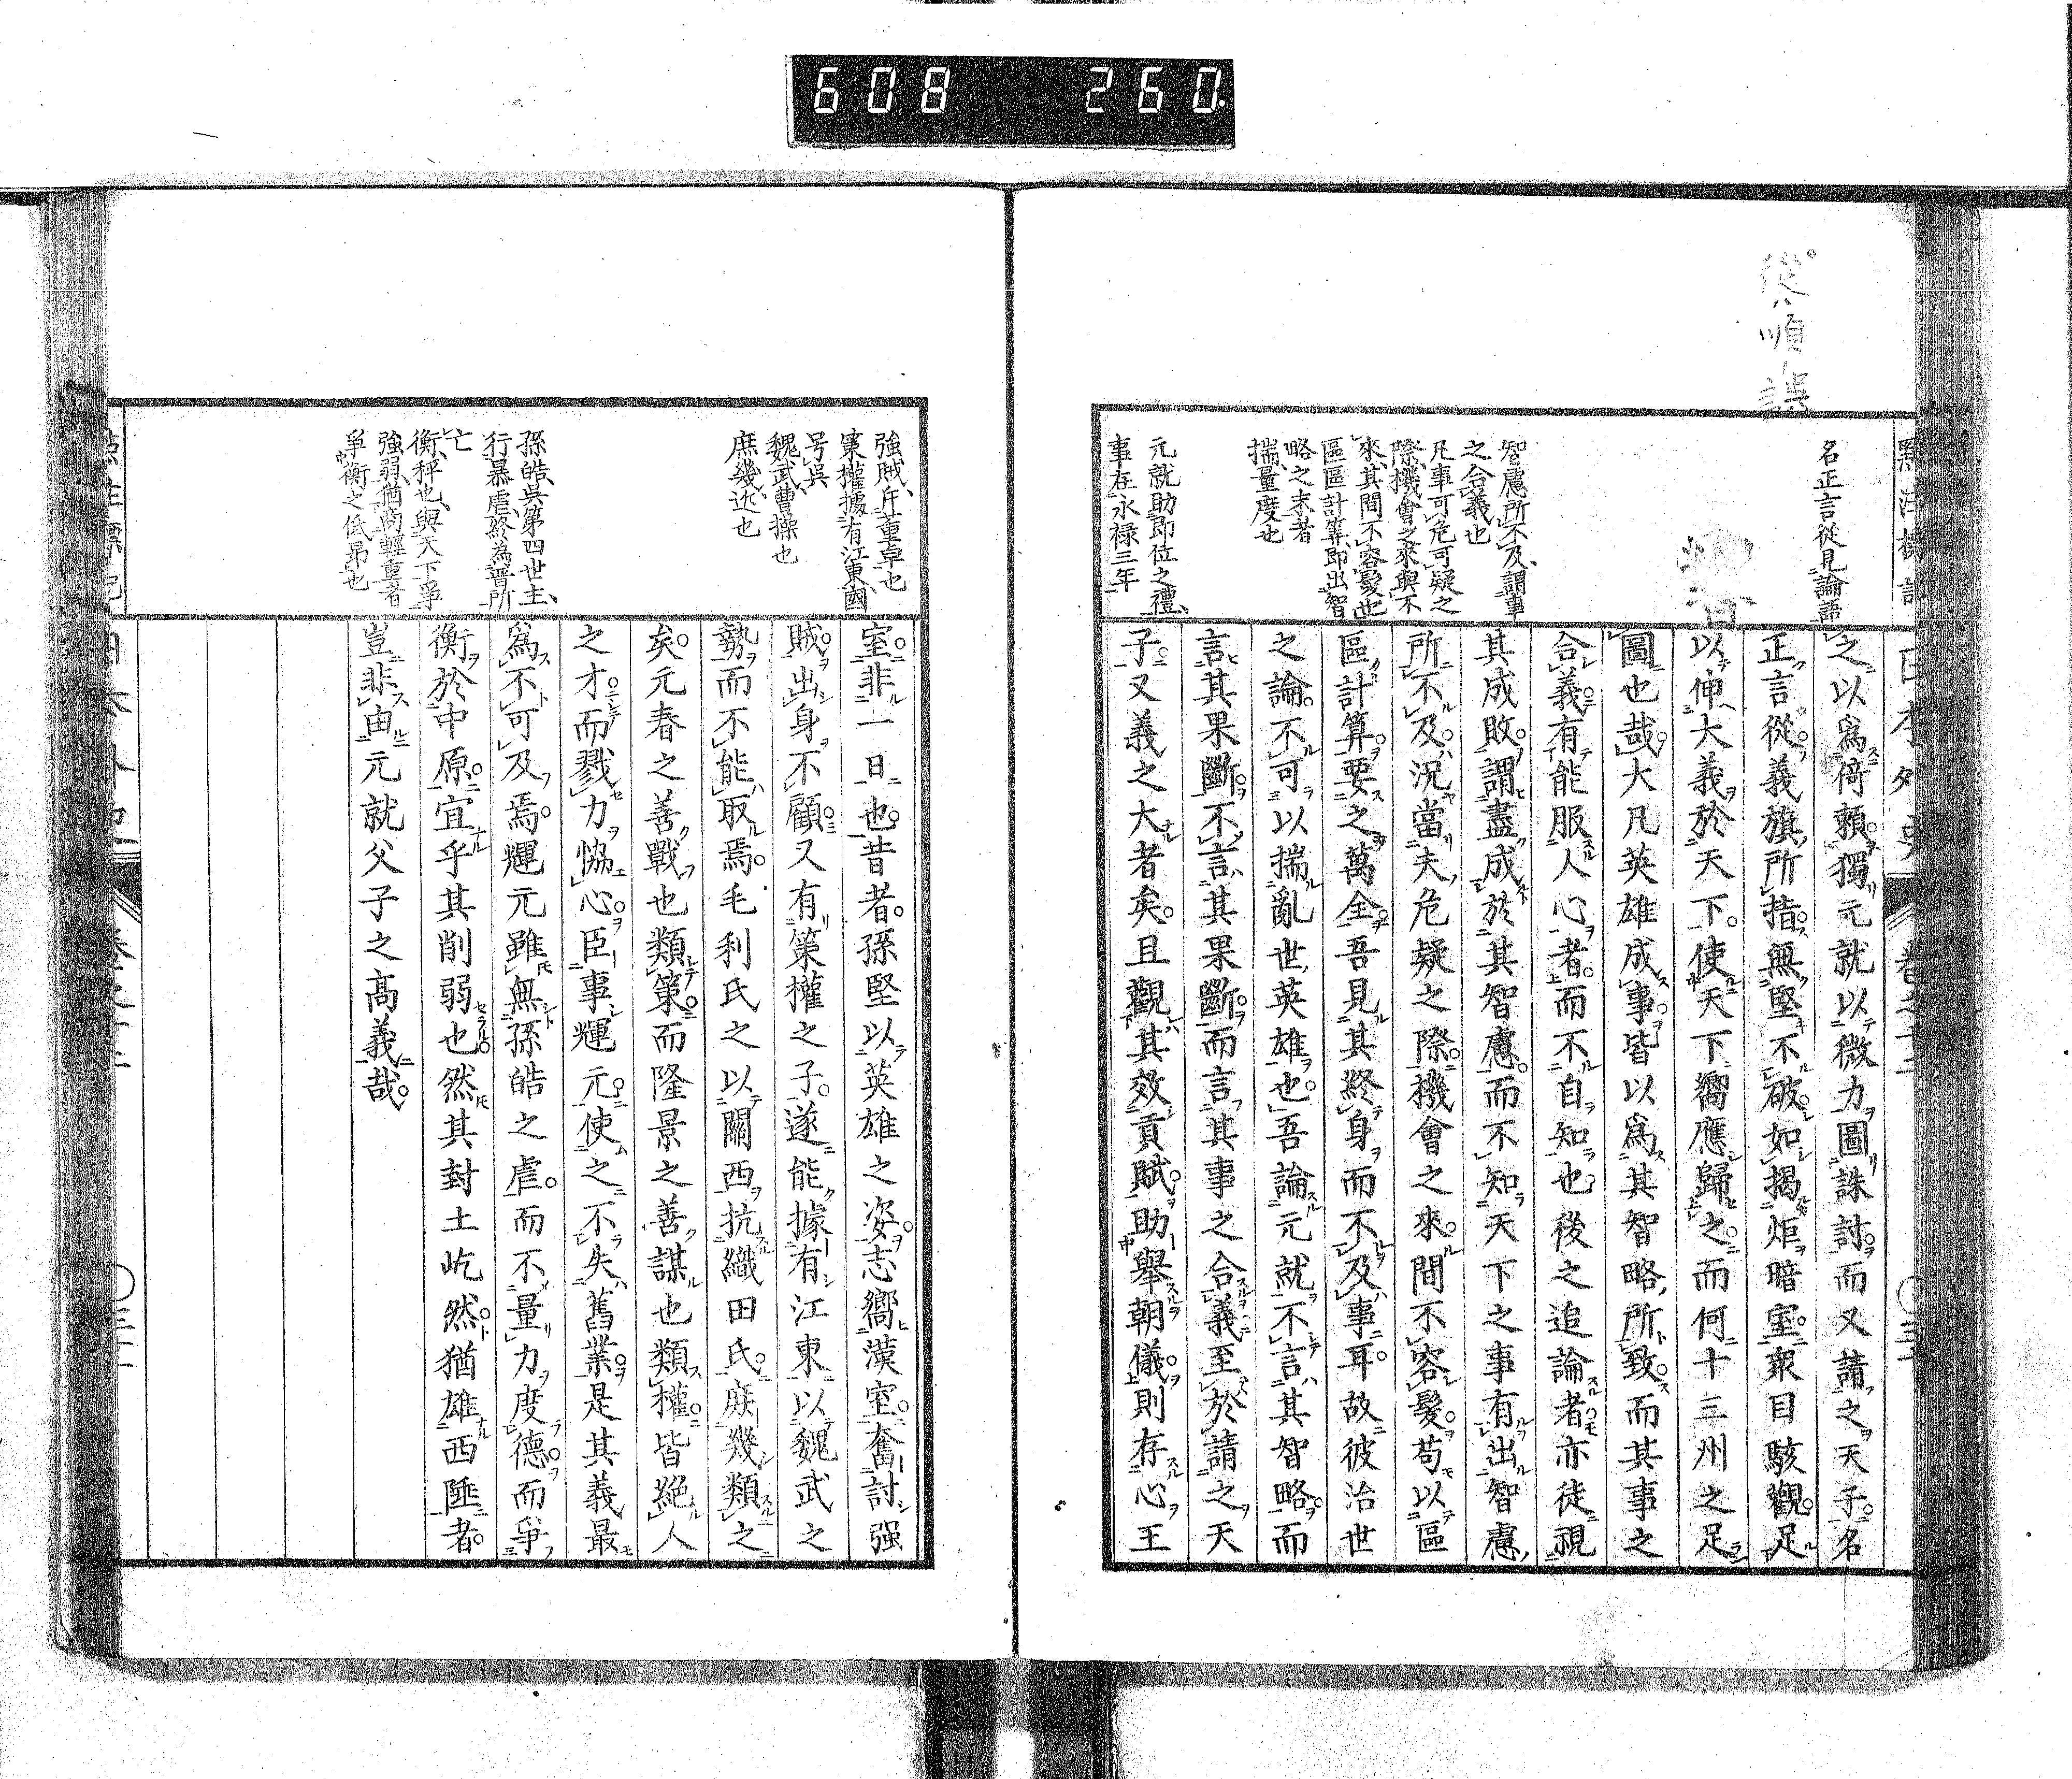 608 260.
從ハ順ノ誤
名正言從見論語
智慮所不及謂事
之合義也
凡事可危可疑之
際機會之來與不
來其間不容髮也
區區計算即出智
略之末者
揣量度也
元就助即位之禮
事在永禄三年
之以爲倚賴獨元就以微力圖誅討而又請之天子名
正言從義旗所指無堅不破如揭炬暗室衆目駭觀足
以伸大義於天下使天下嚮應歸之而何十三州之足
圖也哉大凡英雄成事皆以爲其智略所致而其事之
合義有能服人心者而不自知也後之追論者亦徒視
其成敗謂盡成於其智慮而不知天下之事有出智慮
所不及況當夫危疑之際機會之來間不容髮苟以區
區計算要之萬全吾見其終身而不及事耳故彼治世
之論不可以揣亂世英雄也吾論元就不言其智略而
言其果斷不言其果斷而言其事之合義至於請之天
子又義之大者矣且觀其效貢賦助舉朝儀則存心王
強賊斥董卓也
策權據有江東國
号吳
魏武曹操也
庶幾近也
孫皓吳第四世主
行暴虐終為晉所
亡
衡秤也與天下爭
強弱猶尚輕重者
爭衡之低昂也
室非一日也昔者孫堅以英雄之姿志嚮漢室奮討强
賊出身不顧又有策權之子遂能據有江東以魏武之
勢而不能取焉毛利氏之以關西抗織田氏庶幾類之
矣元春之善戰也類策而隆景之善謀也類權皆絕人
之才而戮力協心臣事輝元使之不失舊業是其義最
爲不可及焉輝元雖無孫皓之虐而不量力度德而爭
衡於中原宜乎其削弱也然其封土屹然猶雄西陲者
豈非由元就父子之高義哉